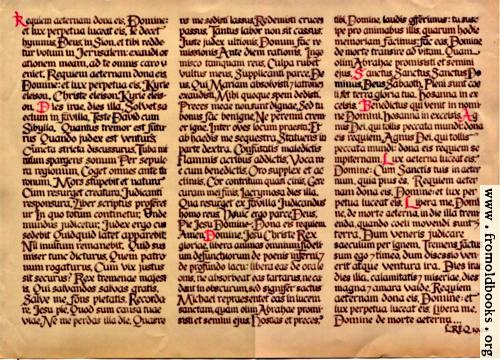 Requiem aeternam dona eis, Domine:
et lux perpetua luceat eis, te decet
hymnus, Deus, in Sion, et tibi redde
tur votum in Jerusalem: exaudi or
ationem meam, ad te omnis caro v
eniet. Requiem aeternam dona eis
Domine: et lux perpetua eis, Kyrie
eleison, Christe eleison, Kyrie eleis-
on. Dies irae, dies illa, Solvet sa
eclum in favilla, Teste David cum
Sibylla. Quantus tremor est futur
us Quando judex est venturus
Cuncta stricte discussurus, Tuba mi
rum spargens sonum Per sepulc
ra regionum, Coget omnes ante th
ronum. Mors stupebit et natura
Cum resurget creatura, Judicanti
responsura, Liber scriptus profere
tur In quo totum continetur, Unde
mundus judicetur, Judex ergo cus
sedebit Quidquid latet apparebit
Nil inultum remanebit. Quid sus
miser tunc dicturus, Quem patro
num rogaturus, Cum vix justus
sit securus? Rex tremenae majest
is, Qui salvandos salvas gratis,
Salve me, fons pietatis. Recorda-
re, Jesu pie, Quod sum causa tuae
viae, Ne me perdas illa die, Quaere
ns me sedisti lassus, Redemisti cruces
passus, Tantus labor non sit cassus.
Juste judex ultionis Donum fac re
missionis Ante diem rationis. Inge
misco tamquam reus, Culpa rubet
vultus meus, Supplicanti parce, De
us. Qui Mariam absolvisti, latronis
exaudisti, Mihi quoque spem dedisti.
Preces meae non sunt dignae, Sed tu
bonus fac benigne, Ne perenni crem
er igne. Inter oves locum praesta, Et
ab haedis me sequestra, Statuens in
parte dextra. Confutatis maledictis
Flammis acribus addictis, Voca m
e cum benedictis. Oro supplex et ac
clinis, Cor contritum quasi cinis, Gere
curam mei finis, Lacrymosa dies illa,
Qua resurget ex favilla Judicandus
homo reus, Huic ergo parce, Deus,
Pie Jesu Domine, Dona eis requiem
Amen. Domine, Jesu Christe Rex
gloriae, libera animas omnium fideli
um defunctorum de poenis inferni,
de profundo lacu: libera eas de ore le
onis, ne absorbeat eas tartarus, ne ca
dant in obscurum, sed signifer sanctus
Michael repraesentet eas in lucem
sanctam, quam olim Abrahae promi
sisti et semini ejus, Hostias et preces,
tibi, Domine, laudis offerimus: tu susc
ipe pro animabus illis, quarum hodie
memoriam facimus: fac eas, Domine
de morte transire ad vitam, Quam
olim Abrahae promisisti et semini
ejus, Sanctus, Sanctus, Sanctus Do
minus, Deus Sabaoth, Pleni sunt coe
li et terra gloria tua, Hosanna in ex
celsis, Benedictus qui venit in nomi
ne Domini, hosanna in excelsis, Ag
nus Dei, qui tollis peccata mundi: dona
eis requiem, Agnus Dei, qui tollis
peccata mundi: dona eis requiem se
mpiternam. Lux aeterna luceat eis,
Domine: Cum Sanctis tuis in aeter
num, quia pius es. Requiem aeter
nam dona eis, Domine et lux per
petua luceat eis. Libera me, Domi
ne, de morte aeterna, in die illa trem
enda, quando coeli movendi sunt et
terra, Dum veneris judicare
saeculum per ignem, Tremens factus
sum ego, timeo dum discessio ven
erit atque ventura ira, Dies ira
dies illa, calamitatis, miseriae, dies
magna, amara valde. Requiem
aeternam dona eis, Domine: et
lux perpetua luceat eis. Libera me,
Domine, de morte aeterna...
www.fromoldbooks.org